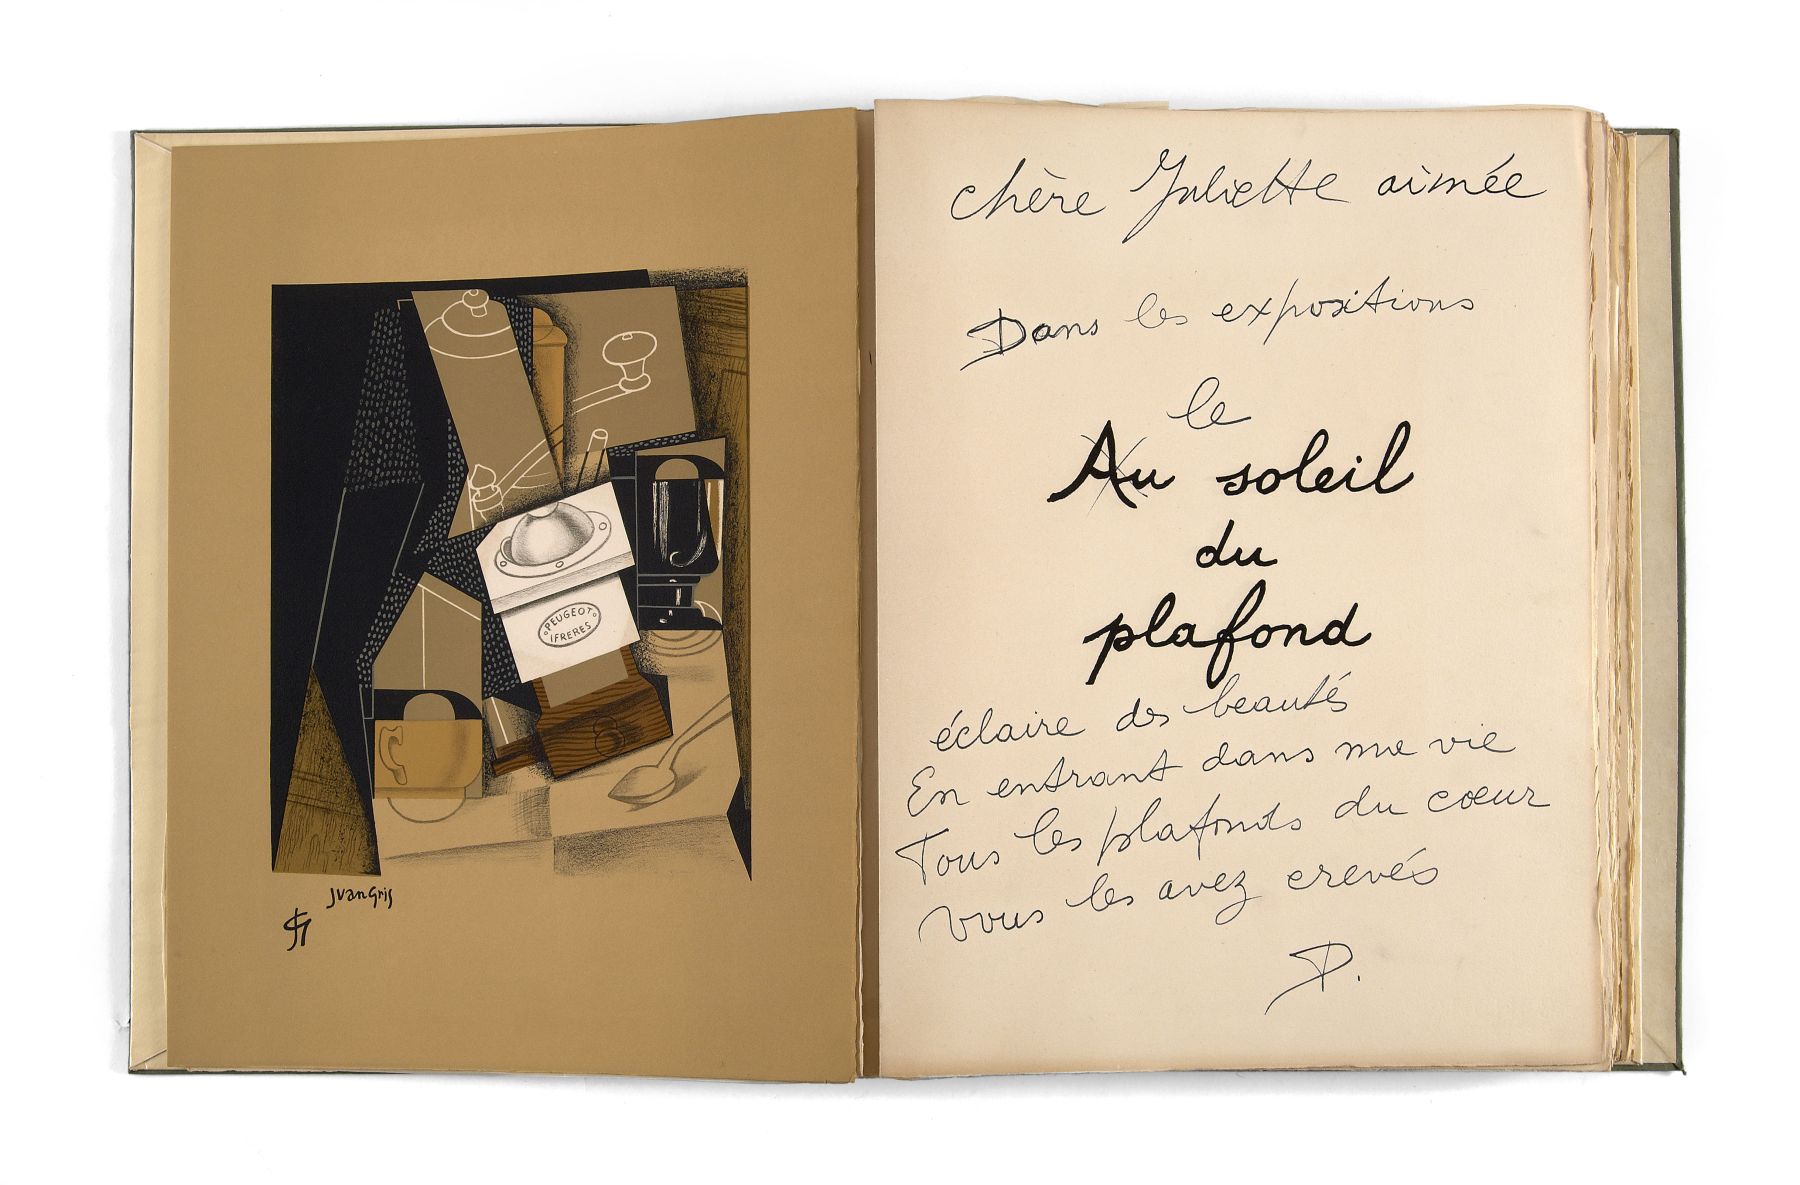 PEUGEOT
FRERES
JuanGris
JG
chère Juliette aimée
Dans les expositions
le
Au soleil
du
plafond
éclaire des beautés
En entrant dans ma vie
Tous les plafonds du cœur
vous les avez crevés
D.